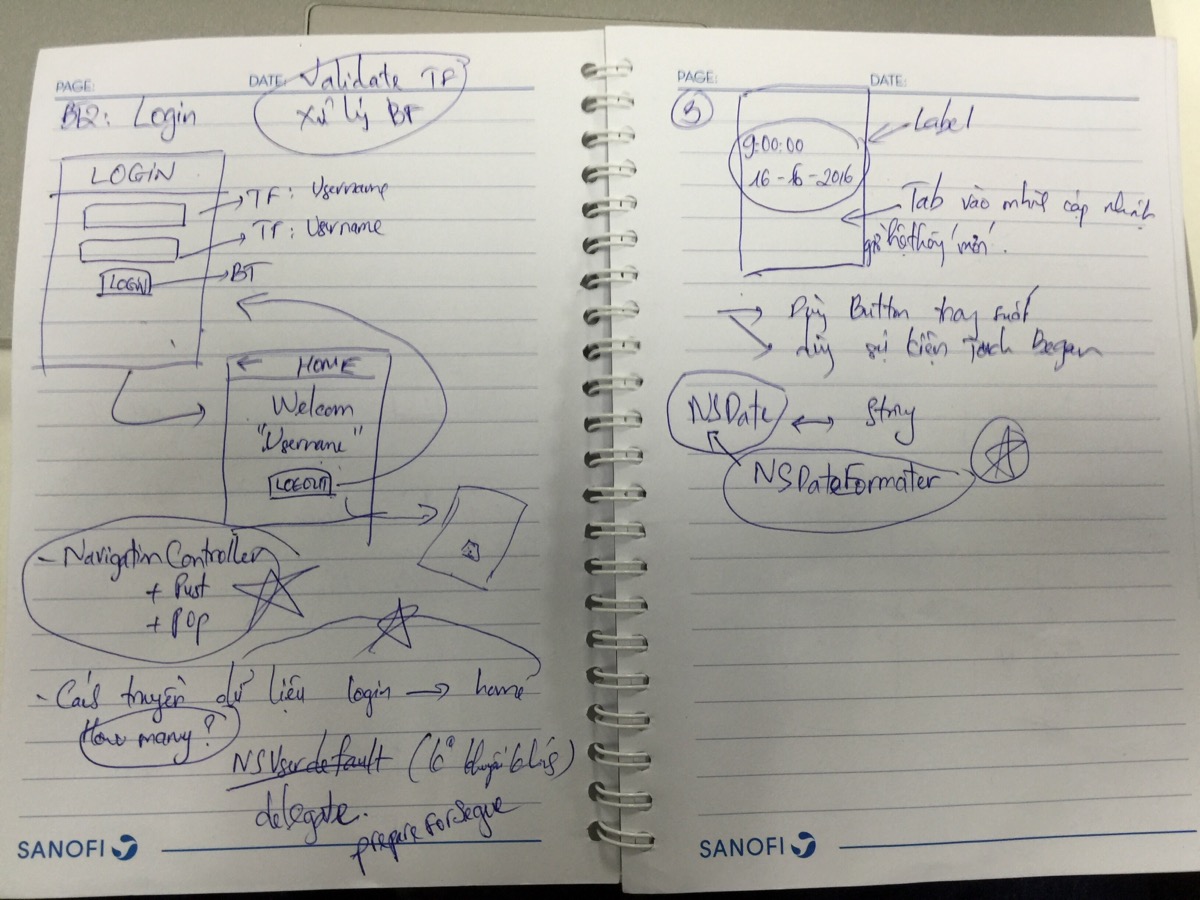 PAGE:
DATE: Validate TF
xử lý BT
Bt2: Login
LOGIN
TF: Username
TF: Username
LOGIN
BT
HOME
Welcom
"Username"
LOGOUT
- Navigation Controller
+ Pust
+ POP
- Cách truyền dữ liệu login → home
How many?
NSUserdefault (
delegate.
prepareForSegue
SANOFI
PAGE:
DATE:
3
9:00:00
16-6-2016
Label
Tab vào màn cập nhật
giờ hệ thống mới.
→ Dùng Button trong suốt
dùng sự kiện Touch Began
NSDate ↔ String
NSDateFormater
SANOFI